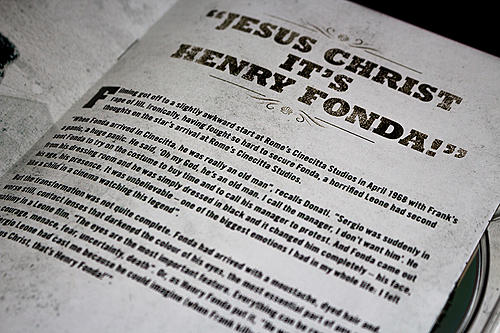 "JESUS CHRIST
IT'S
HENRY FONDA!"
Filming got off to a slightly awkward start at Rome's Cinecitta Studios in April 1968 with Frank's
rape of Jill. Ironically, having fought so hard to secure Fonda, a horrified Leone had second
thoughts on the star's arrival at Rome's Cinecitta Studios.
"When Fonda arrived in Cinecitta, he was really an old man", recalls Donati. "Sergio was suddenly in
a panic, a huge panic. He said, 'Oh my God, he's an old man. I call the manager, I don't want him'. He
sent Fonda to try on the costume to buy time and to call his manager to protest. And Fonda came out
from his dressing room and he was simply dressed in black and it changed him completely – his face,
his age, his presence. It was unbelievable – one of the biggest emotions I had in my whole life. I felt
like a child in a cinema watching his legend".
But the transformation was not quite complete. Fonda had arrived with a moustache, dyed hair
worse still, contact lenses that darkened the colour of his eyes, the most essential part of
in a Leone film. "The eyes are the most important feature. Everything can be
courage, menace, fear, uncertainty, death" Or, as Henry Fonda put it,
Sergio Leone had cast me because he could imagine (when Frank
Christ, that's Henry Fonda!"